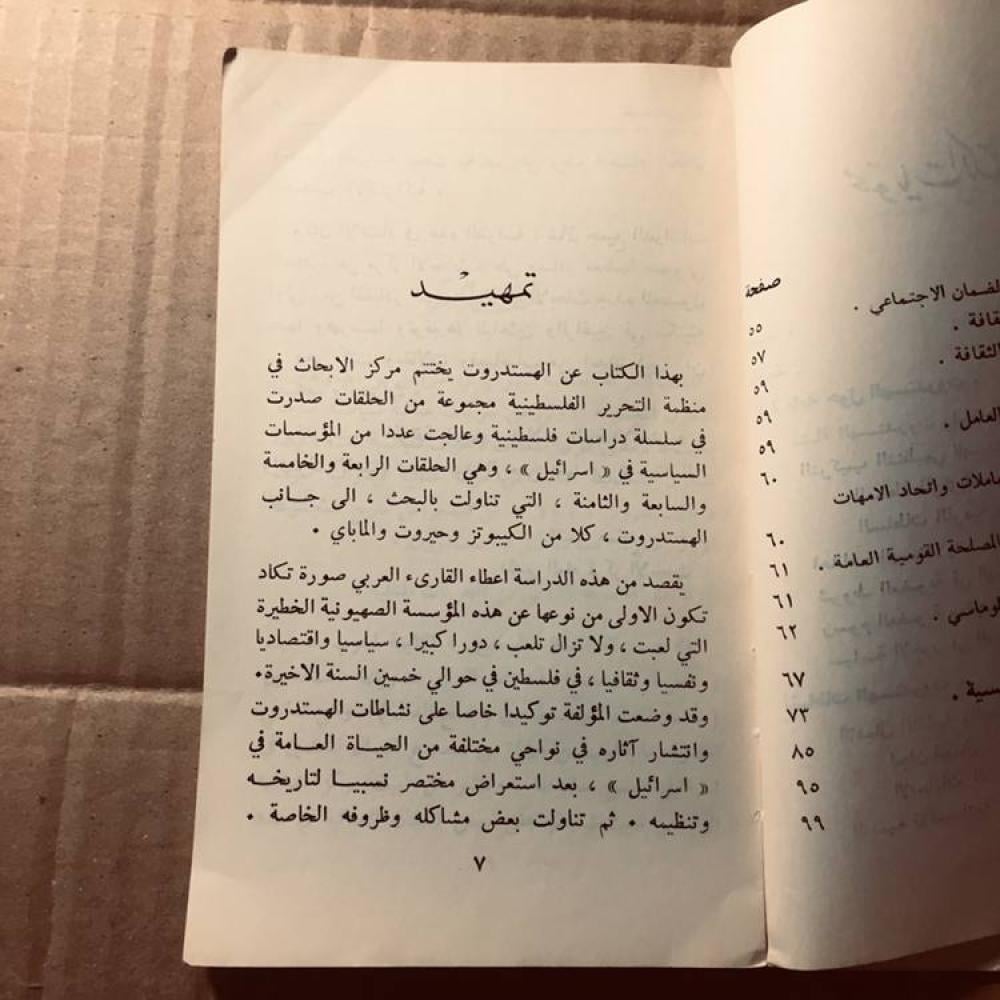 تمهيد
بهذا الكتاب عن الهستدروت يختتم مركز الابحاث في
منظمة التحرير الفلسطينية مجموعة من الحلقات صدرت
في سلسلة دراسات فلسطينية وعالجت عددا من المؤسسات
السياسية في « اسرائيل » ، وهي الحلقات الرابعة والخامسة
والسابعة والثامنة ، التي تناولت بالبحث ، الى جانب
الهستدروت ، كلا من الكيبوتز وحيروت والماباي .
يقصد من هذه الدراسة اعطاء القارىء العربي صورة تكاد
تكون الاولى من نوعها عن هذه المؤسسة الصهيونية الخطيرة
التي لعبت ، ولا تزال تلعب ، دورا كبيرا ، سياسيا واقتصاديا
ونفسيا وثقافيا ، في فلسطين في حوالي خمسين السنة الاخيرة .
وقد وضعت المؤلفة توكيدا خاصا على نشاطات الهستدروت
وانتشار آثاره في نواحي مختلفة من الحياة العامة في
« اسرائيل » ، بعد استعراض مختصر نسبيا لتاريخه
وتنظيمه . ثم تناولت بعض مشاكله وظروفه الخاصة .
٧
صفحة
لضمان الاجتماعي . ٥٥
قافة . ٥٧
الثقافة . ٥٩
٥٩
العامل . ٥٩
٦٠
املات واتحاد الامهات
٦٠
المصلحة القومية العامة . ٦١
٦١
لوماسي . ٦٢
٦٧
سية . ٧٣
٨٥
٩٥
٩٩